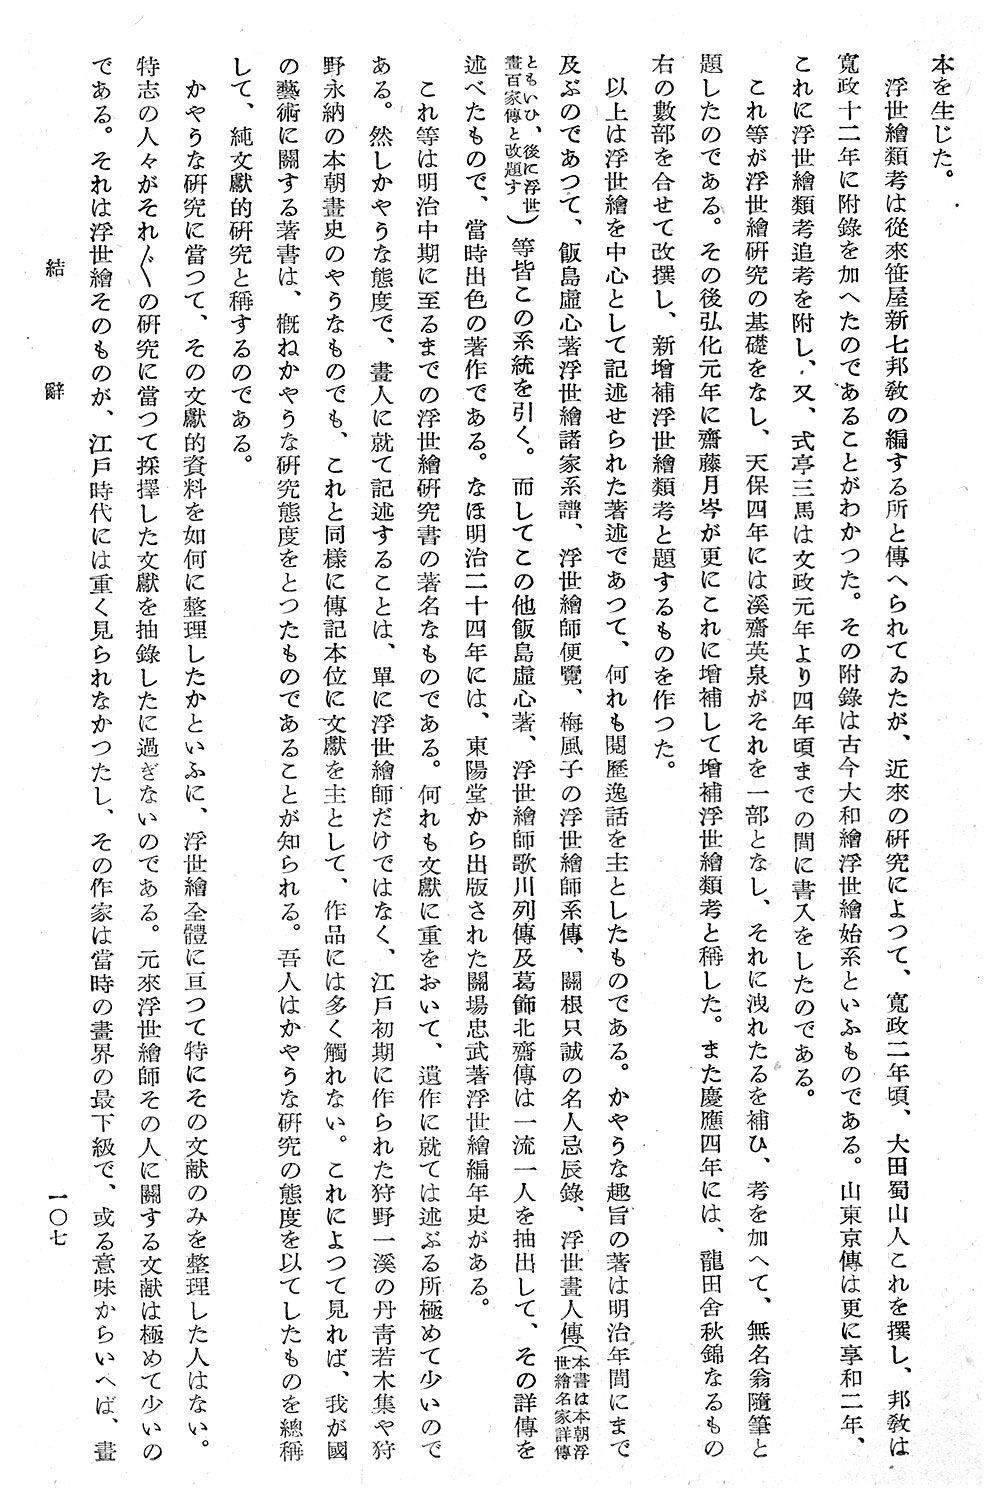 本を生じた。
浮世繪類考は從來笹屋新七邦敎の編する所と傳へられてゐたが、近來の硏究によつて、寬政二年頃、大田蜀山人これを撰し、邦敎は
寬政十二年に附錄を加へたのであることがわかつた。その附錄は古今大和繪浮世繪始系といふものである。山東京傳は更に享和二年、
これに浮世繪類考追考を附し、又、式亭三馬は文政元年より四年頃までの間に書入をしたのである。
これ等が浮世繪硏究の基礎をなし、天保四年には溪齋英泉がそれを一部となし、それに洩れたるを補ひ、考を加へて、無名翁隨筆と
題したのである。その後弘化元年に齋藤月岑が更にこれに增補して增補浮世繪類考と稱した。また慶應四年には、龍田舍秋錦なるもの
右の數部を合せて改撰し、新增補浮世繪類考と題するものを作つた。
以上は浮世繪を中心として記述せられた著述であつて、何れも閱歷逸話を主としたものである。かやうな趣旨の著は明治年間にまで
及ぶのであつて、飯島虛心著浮世繪諸家系譜、浮世繪師便覽、梅風子の浮世繪師系傳、關根只誠の名人忌辰錄、浮世畫人傳(本書は本朝浮世繪名家詳傳
ともいひ、後に浮世畫百家傳と改題す)等皆この系統を引く。而してこの他飯島虛心著、浮世繪師歌川列傳及葛飾北齋傳は一流一人を抽出して、その詳傳を
述べたもので、當時出色の著作である。なほ明治二十四年には、東陽堂から出版された關場忠武著浮世繪編年史がある。
これ等は明治中期に至るまでの浮世繪硏究書の著名なものである。何れも文獻に重をおいて、遺作に就ては述ぶる所極めて少いので
ある。然しかやうな態度で、畫人に就て記述することは、單に浮世繪師だけではなく、江戶初期に作られた狩野一溪の丹靑若木集や狩
野永納の本朝畫史のやうなものでも、これと同樣に傳記本位に文獻を主として、作品には多く觸れない。これによつて見れば、我が國
の藝術に關する著書は、槪ねかやうな硏究態度をとつたものであることが知られる。吾人はかやうな硏究の態度を以てしたものを總稱
して、純文獻的硏究と稱するのである。
かやうな硏究に當つて、その文獻的資料を如何に整理したかといふに、浮世繪全體に亘つて特にその文献のみを整理した人はない。
特志の人々がそれ〴〵の硏究に當つて採擇した文獻を抽錄したに過ぎないのである。元來浮世繪師その人に關する文献は極めて少いの
である。それは浮世繪そのものが、江戶時代には重く見られなかつたし、その作家は當時の畫界の最下級で、或る意味からいへば、畫
結辭
一〇七